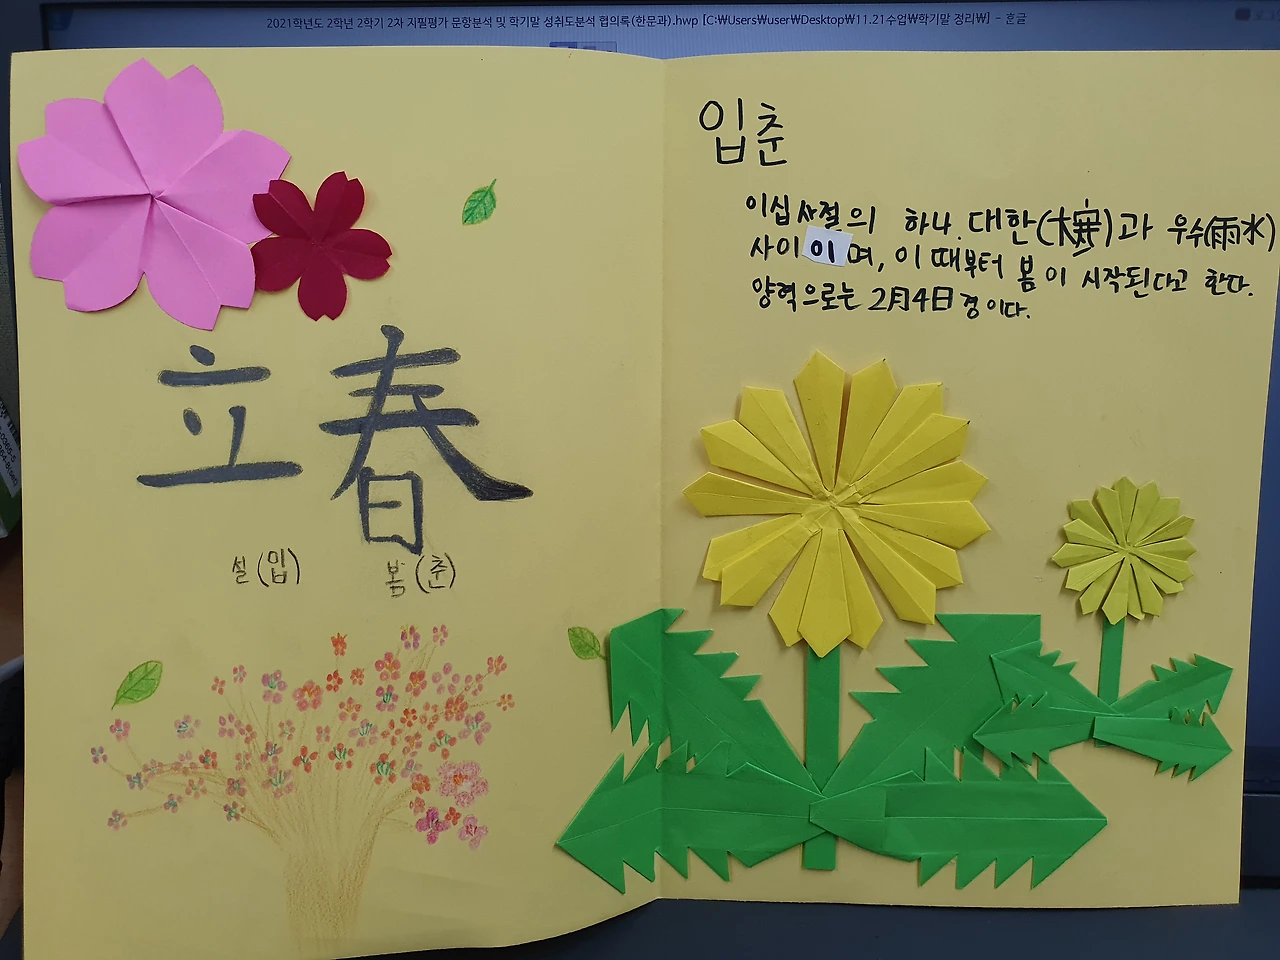 2021학년도 2학년 2학기 2차 지필평가 문항분석 및 학기말 성취도분석 협의록(한문과).hwp [C:₩Users₩user₩Desktop₩11.21수업₩학기말 정리₩] - 흔글
立春
설(입) 봄(춘)
입춘
이십사절의 하나. 대한(大寒)과 우수(雨水)
사이이며, 이 때부터 봄이 시작된다고 한다.
양력으로는 2月4日경이다.